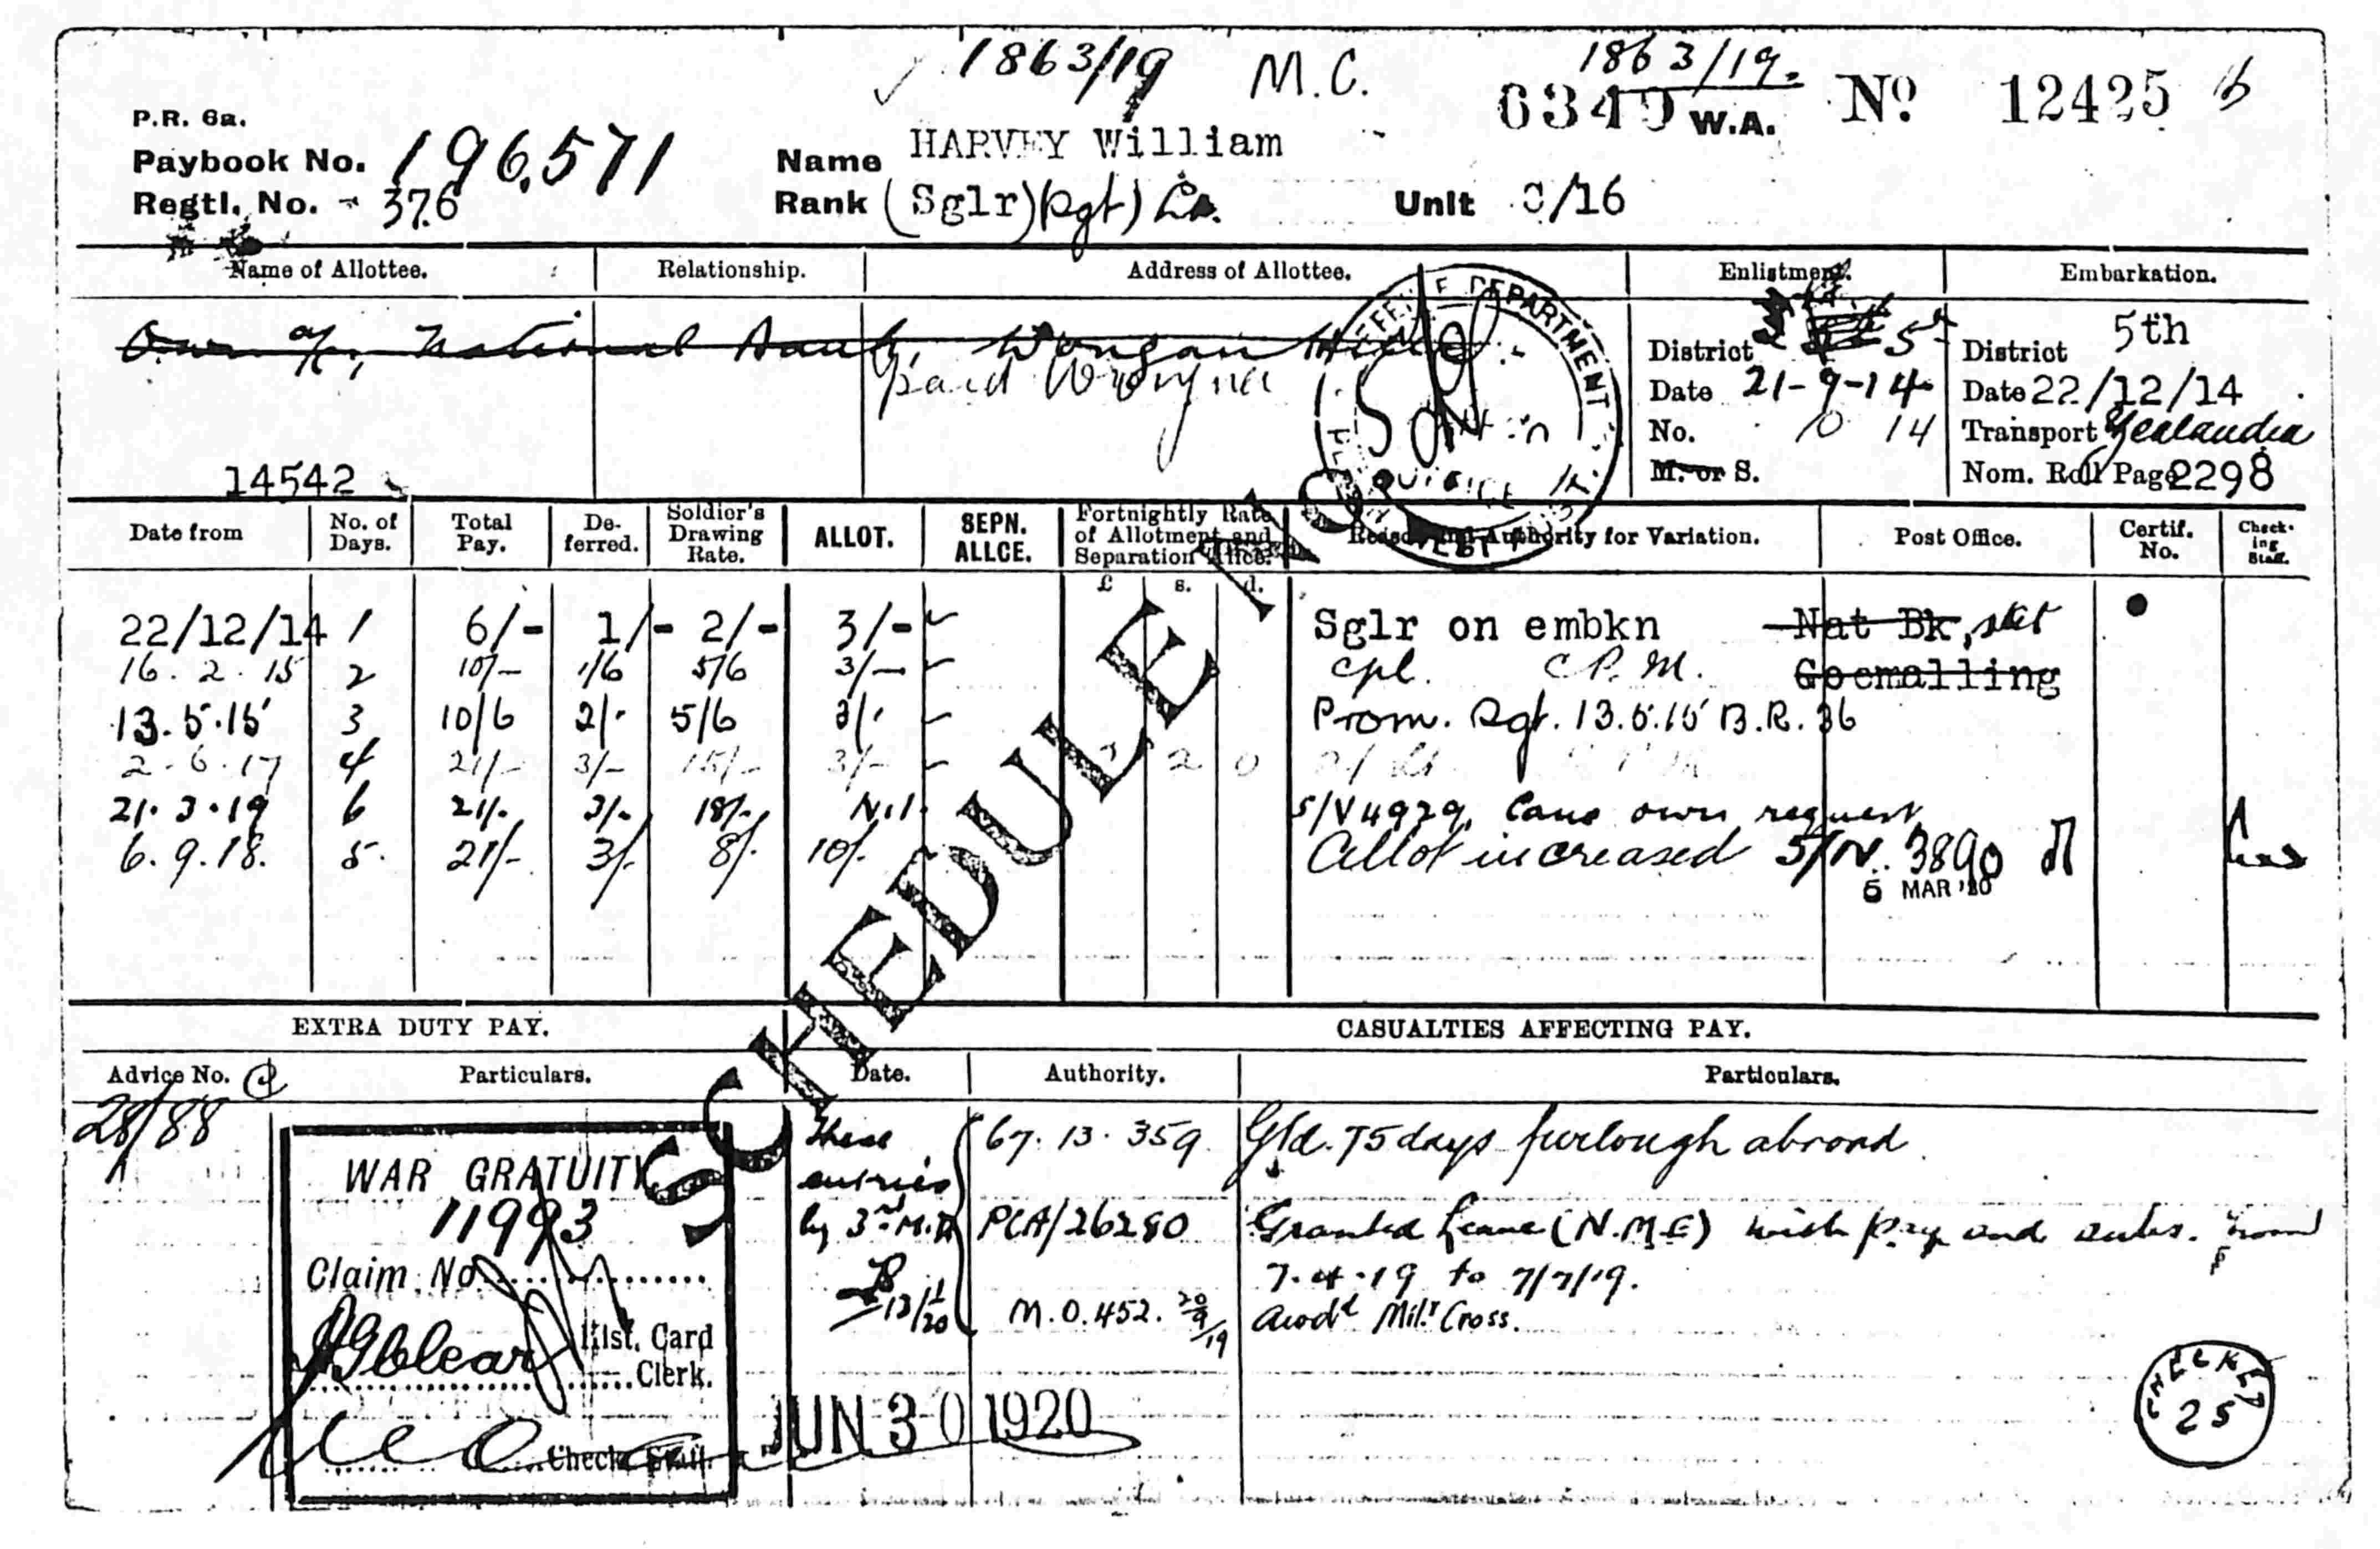 1863/19 M.C. 1863/19.
6349 W.A. Nº 12425
P.R. 6a.
Paybook No. 196,571 Name HARVEY William
Regtl. No. - 376 Rank (Sglr)(Sgt) Lt. Unit C/16
Name of Allottee. Relationship. Address of Allottee. Enlistment. Embarkation.
Own a/c, National Bank, Wongan Hills
paid Wooyna
DEFENCE DEPARTMENT
District 5th District 5th
Date 21-9-14 Date 22/12/14
No. 10 14 Transport Zealandia
M. or S. Nom. Roll Page 2298
14542
Date from No. of Days. Total Pay. De-ferred. Soldier's Drawing Rate. ALLOT. SEPN. ALLCE. Fortnightly Rate of Allotment and Separation Allce. Reason and Authority for Variation. Post Office. Certif. No. Check-ing Staff.
£ s. d.
22/12/14 1 6/- 1/- 2/- 3/- Sglr on embkn Nat Bk, stet
16.2.15 2 10/- 1/6 5/6 3/- Cpl. C.P.M. Goomalling
13.5.15 3 10/6 2/- 5/6 3/- Prom. Sgt. 13.5.15 B.R. 36
2.6.17 4 21/- 3/- 15/- 3/- 2 2 0
21.3.19 6 21/- 3/- 18/- Nil S/V4929, Canc own request
6.9.18. 5. 21/- 3/- 8/- 10/- Allot increased S/N. 3890
5 MAR '20
SCHEDULE
EXTRA DUTY PAY. CASUALTIES AFFECTING PAY.
Advice No. Particulars. Date. Authority. Particulars.
28/88 These entries by 3rd M.D. 67.13.359 Gtd. 75 days furlough abroad
WAR GRATUITY
11993
Claim No.
PCA/26280 Granted Leave (N.M.E) with pay and subs. from
7.4.19 to 7/7/19.
13/1/20 M.O.452. 20/9/19 Awdd Mily Cross.
Hist. Card
Clerk.
JUN 30 1920
Check Staff.
CHECKED
25